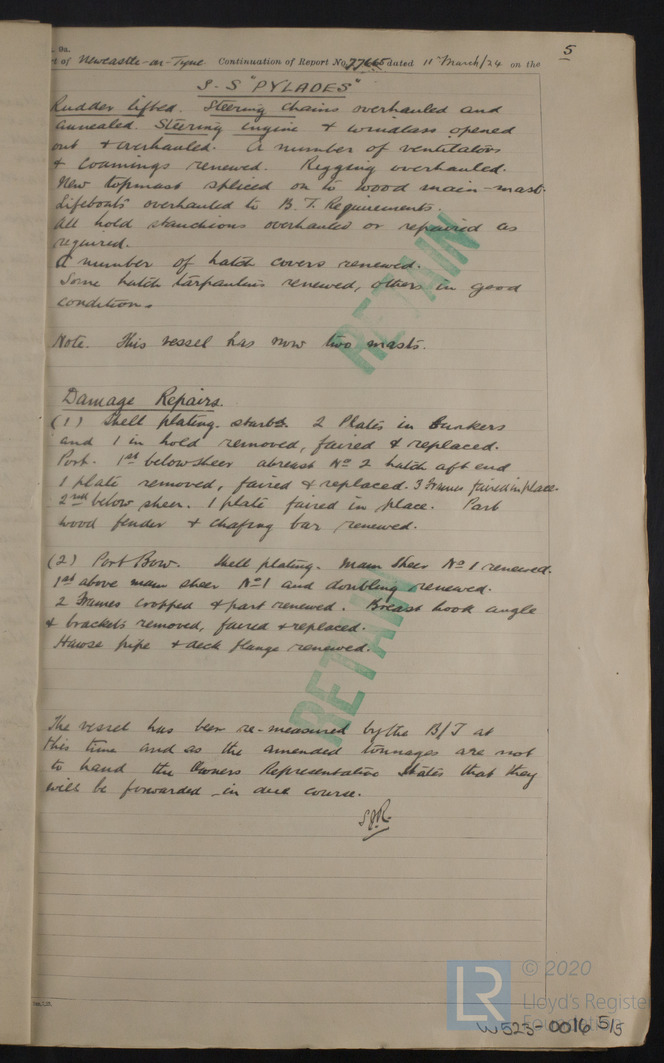 5
t of Newcastle-on-Tyne Continuation of Report No. 77665 dated 11th March/24 on the
S-S "PYLADES"
Rudder lifted. Steering chains overhauled and
annealed. Steering engine & windlass opened
out & overhauled. A number of ventilators
& coamings renewed. Rigging overhauled.
New topmast spliced on to wood main-mast.
Lifeboats overhauled to B.T. Requirements.
All hold stanchions overhauled or repaired as
required.
A number of hatch covers renewed.
Some hatch tarpaulins renewed, others in good
condition.
RETAIN
Note. This vessel has now two masts.
Damage Repairs.
(1) Shell plating. starbd. 2 Plates in Bunkers
and 1 in hold removed, faired & replaced.
Port. 1st below sheer abreast No 2 hatch aft end
1 plate removed, faired & replaced. 3 Frames faired in place.
2nd below sheer. 1 plate faired in place. Part
wood fender & chafing bar renewed.
(2) Port Bow. Shell plating. Main Sheer No 1 renewed.
1st above main sheer No 1 and doubling renewed.
2 Frames cropped & part renewed. Breast hook angle
& brackets removed, faired & replaced.
Hawse pipe & deck flange renewed.
RETAIN
The vessel has been re-measured by the B/T at
this time and as the amended tonnages are not
to hand the Owners Representative States that they
will be forwarded in due course.
LR © 2020
Lloyd's Registe
Foundation
W523-0016 5/5